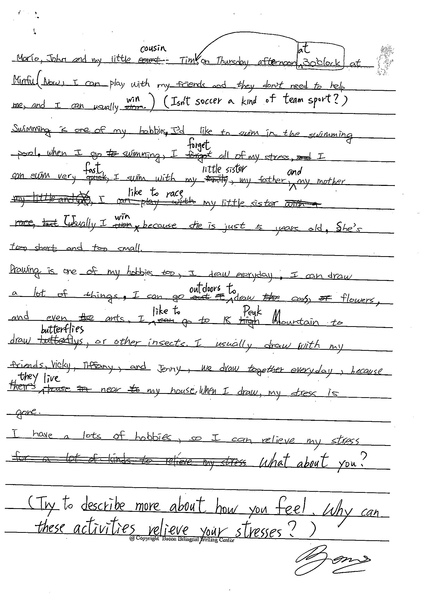 cousin
Mario, John and my little Tim on Thursday afternoon at 3o'clock at
Minfu (Now, I can play with my friends and they don't need to help
me, and I can usually win) (Isn't soccer a kind of team sport?)
Swimming is one of my hobbie, I'd like to swim in the swimming
forget
pool, when I go to swimming, I all of my stress, I
fast little sister and
can swim very I swim with my my father my mother
like to race
I my little sister
win
Usually I because she is just 5 years old, She's
too short and too small.
Drawing is one of my hobbies too, I draw everyday, I can draw
outdoors to
a lot of things, I can go draw flowers,
like to Peak
and even arts. I go to Mountain to
butterflies
draw or other insects. I usually draw with my
friends, Vicky, Tiffany, and Jenny, we draw together everyday, because
they live
near my house, When I draw, my stress is
gone.
I have a lots of hobbies, so I can relieve my stress
for a lot of kinds to relieve my stress What about you?
(Try to describe more about how you feel. Why can
these activities relieve your stresses?)
@Copyright Bilingual Writing Center